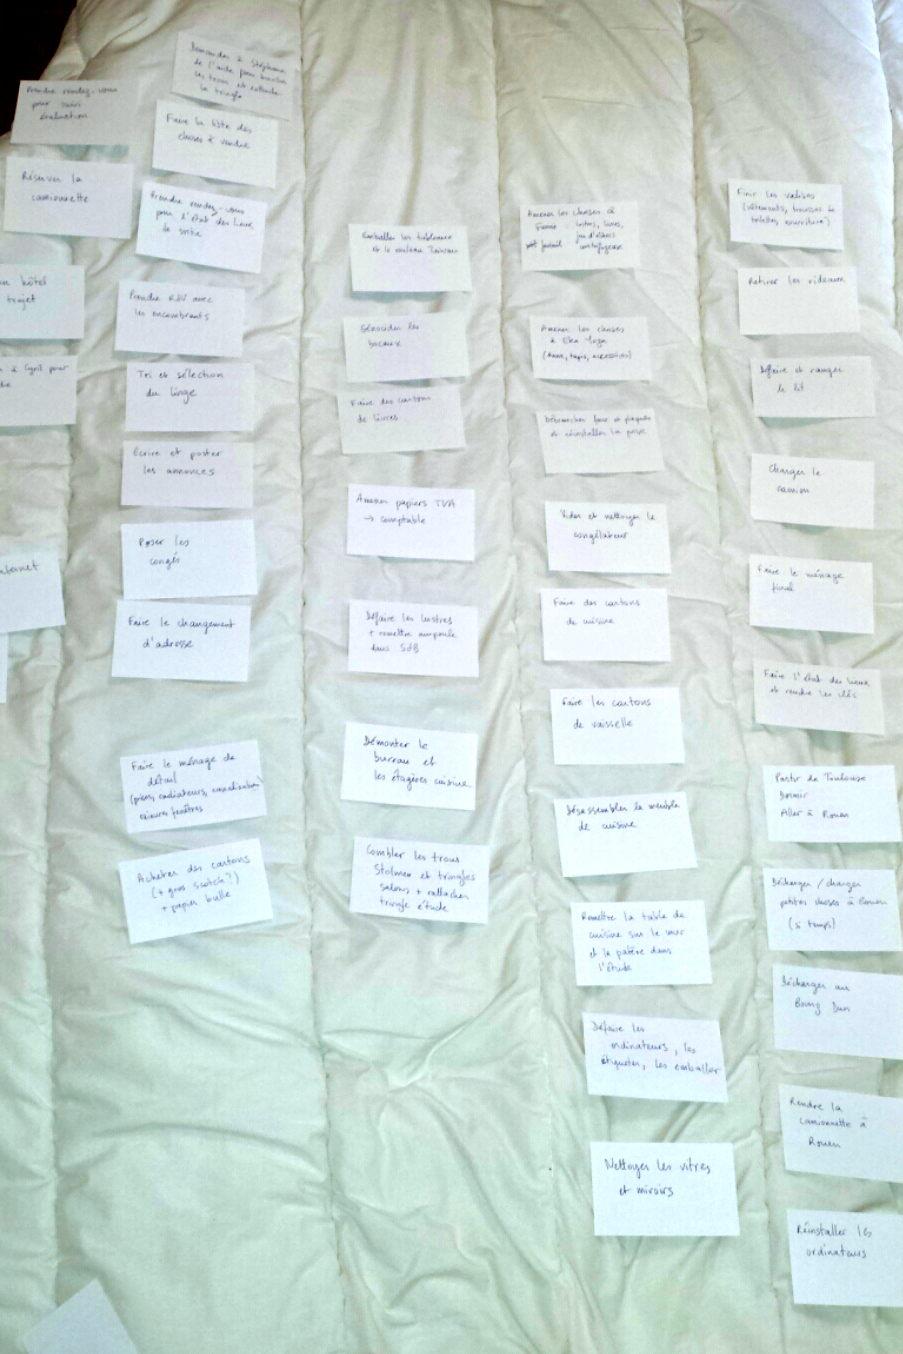 Prendre rendez-vous
pour suivi
évaluation
Réserver la
camionnette
un hôtel
trajet
à Cyril pour
ternet
Demander à Stéphane
de l'aide pour boucher
les trous et
la tringle
Faire la liste des
choses à vendre
Prendre rendez-vous
pour l'état des lieux
de sortie
Prendre RDV avec
les encombrants
Tri et sélection
du linge
Écrire et poster
les annonces
Poser les
congés
Faire le changement
d'adresse
Faire le ménage de
détail
(portes, radiateurs, canalisation,
rainures fenêtres
Acheter des cartons
(+ gros scotch?)
+ papier bulle
Emballer les tableaux
et le rouleau
Génocider les
bocaux
Faire des cartons
de livres
Amener papiers TVA
→ comptable
Défaire les lustres
+ remettre ampoule
dans SdB
Démonter le
bureau et
les étagères cuisine
Combler les trous
Stolmen et tringles
salons + rattacher
tringle étude
Amener les choses à
lustres, livres,
jeu d'échecs
centrifugeuse
Amener les choses
à Elsa Yoga
(tapis, accessoires)
Débrancher four et plaques
et réinstaller la prise
Vider et nettoyer le
congélateur
Faire des cartons
de cuisine
Faire les cartons
de vaisselle
Désassembler le meuble
de cuisine
Remettre la table de
cuisine sur le mur
et la patère dans
l'étude
Défaire les
ordinateurs, les
étiqueter, les emballer
Nettoyer les vitres
et miroirs
Finir les valises
(vêtements, trousses de
toilettes, nourriture)
Retirer les rideaux
Défaire et ranger
le lit
Charger le
camion
Faire le ménage
final
Faire l'état des lieux
et rendre les clés
Partir de Toulouse
Dormir
Aller à Rouen
Décharger / charger
petites choses à Rouen
(si temps)
Décharger au
Bourg Dun
Rendre la
camionnette à
Rouen
Réinstaller les
ordinateurs